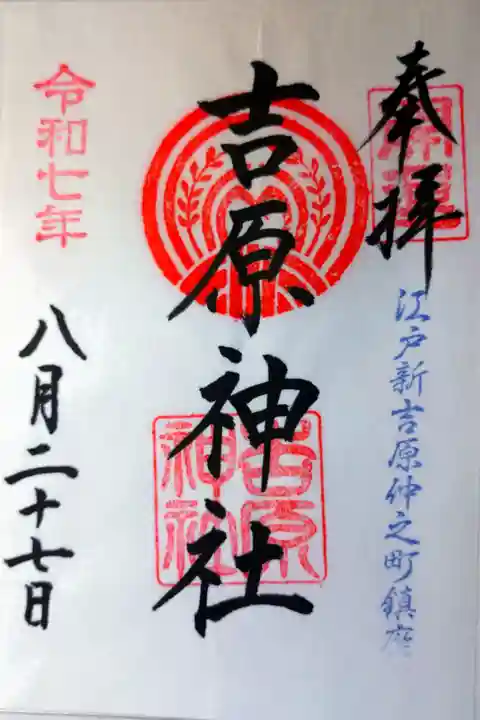 奉拝
開運
江戸新吉原仲之町鎮座
吉原神社
吉原
神社
令和七年
八月二十七日